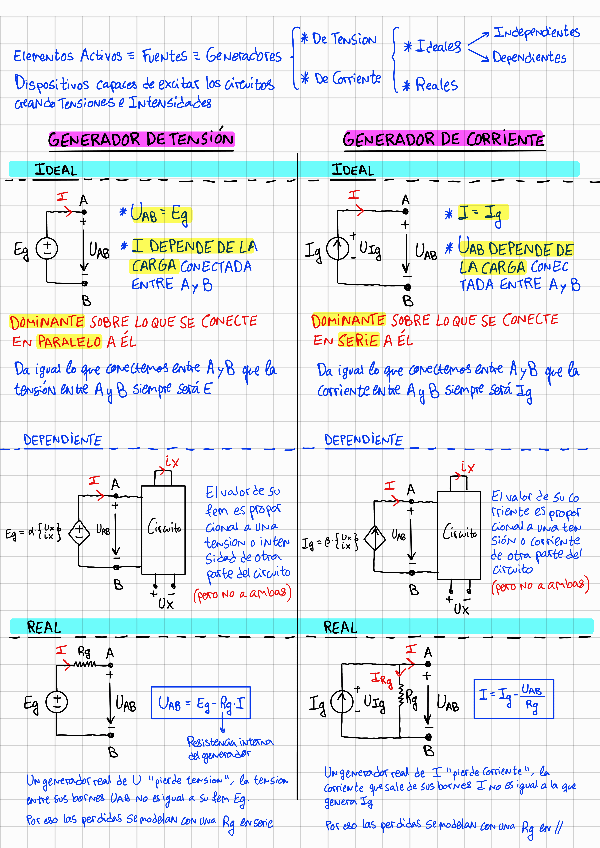 Elementos Activos ≡ Fuentes ≡ Generadores
* De Tension
* De Corriente
* Ideales
* Reales
Independientes
Dependientes
Dispositivos capaces de excitar los circuitos
creando Tensiones e Intensidades
GENERADOR DE TENSIÓN
IDEAL
I A
+
Eg UAB
-
B
* UAB = Eg
* I DEPENDE DE LA
CARGA CONECTADA
ENTRE A y B
DOMINANTE SOBRE LO QUE SE CONECTE
EN PARALELO A ÉL
Da igual lo que conectemos entre A y B que la
tensión entre A y B siempre será E
DEPENDIENTE
ix
I A
+
Eg = α·{Ux/ix} UAB Circuito
-
B
+ -
Ux
El valor de su
fem es propor
cional a una
tension o inten
sidad de otra
parte del circuito
(pero no a ambas)
REAL
I Rg A
+
Eg UAB
-
B
UAB = Eg - Rg·I
Resistencia interna
del generador
Un generador real de U "pierde tension", la tension
entre sus bornes UAB no es igual a su fem Eg.
Por eso las perdidas se modelan con una Rg en serie
GENERADOR DE CORRIENTE
IDEAL
I A
+ +
Ig UIg UAB
- -
B
* I = Ig
* UAB DEPENDE DE
LA CARGA CONEC
TADA ENTRE A y B
DOMINANTE SOBRE LO QUE SE CONECTE
EN SERIE A ÉL
Da igual lo que conectemos entre A y B que la
corriente entre A y B siempre será Ig
DEPENDIENTE
ix
I A
+
Ig = β·{Ux/ix} UAB Circuito
-
B
+ -
Ux
El valor de su co
rriente es propor
cional a una ten
sión o corriente
de otra parte del
circuito
(pero no a ambas)
REAL
I A
IRg
+ +
Ig UIg Rg UAB
- -
B
I = Ig - UAB/Rg
Un generador real de I "pierde corriente", la
corriente que sale de sus bornes I no es igual a la que
genera Ig
Por eso las perdidas se modelan con una Rg en //